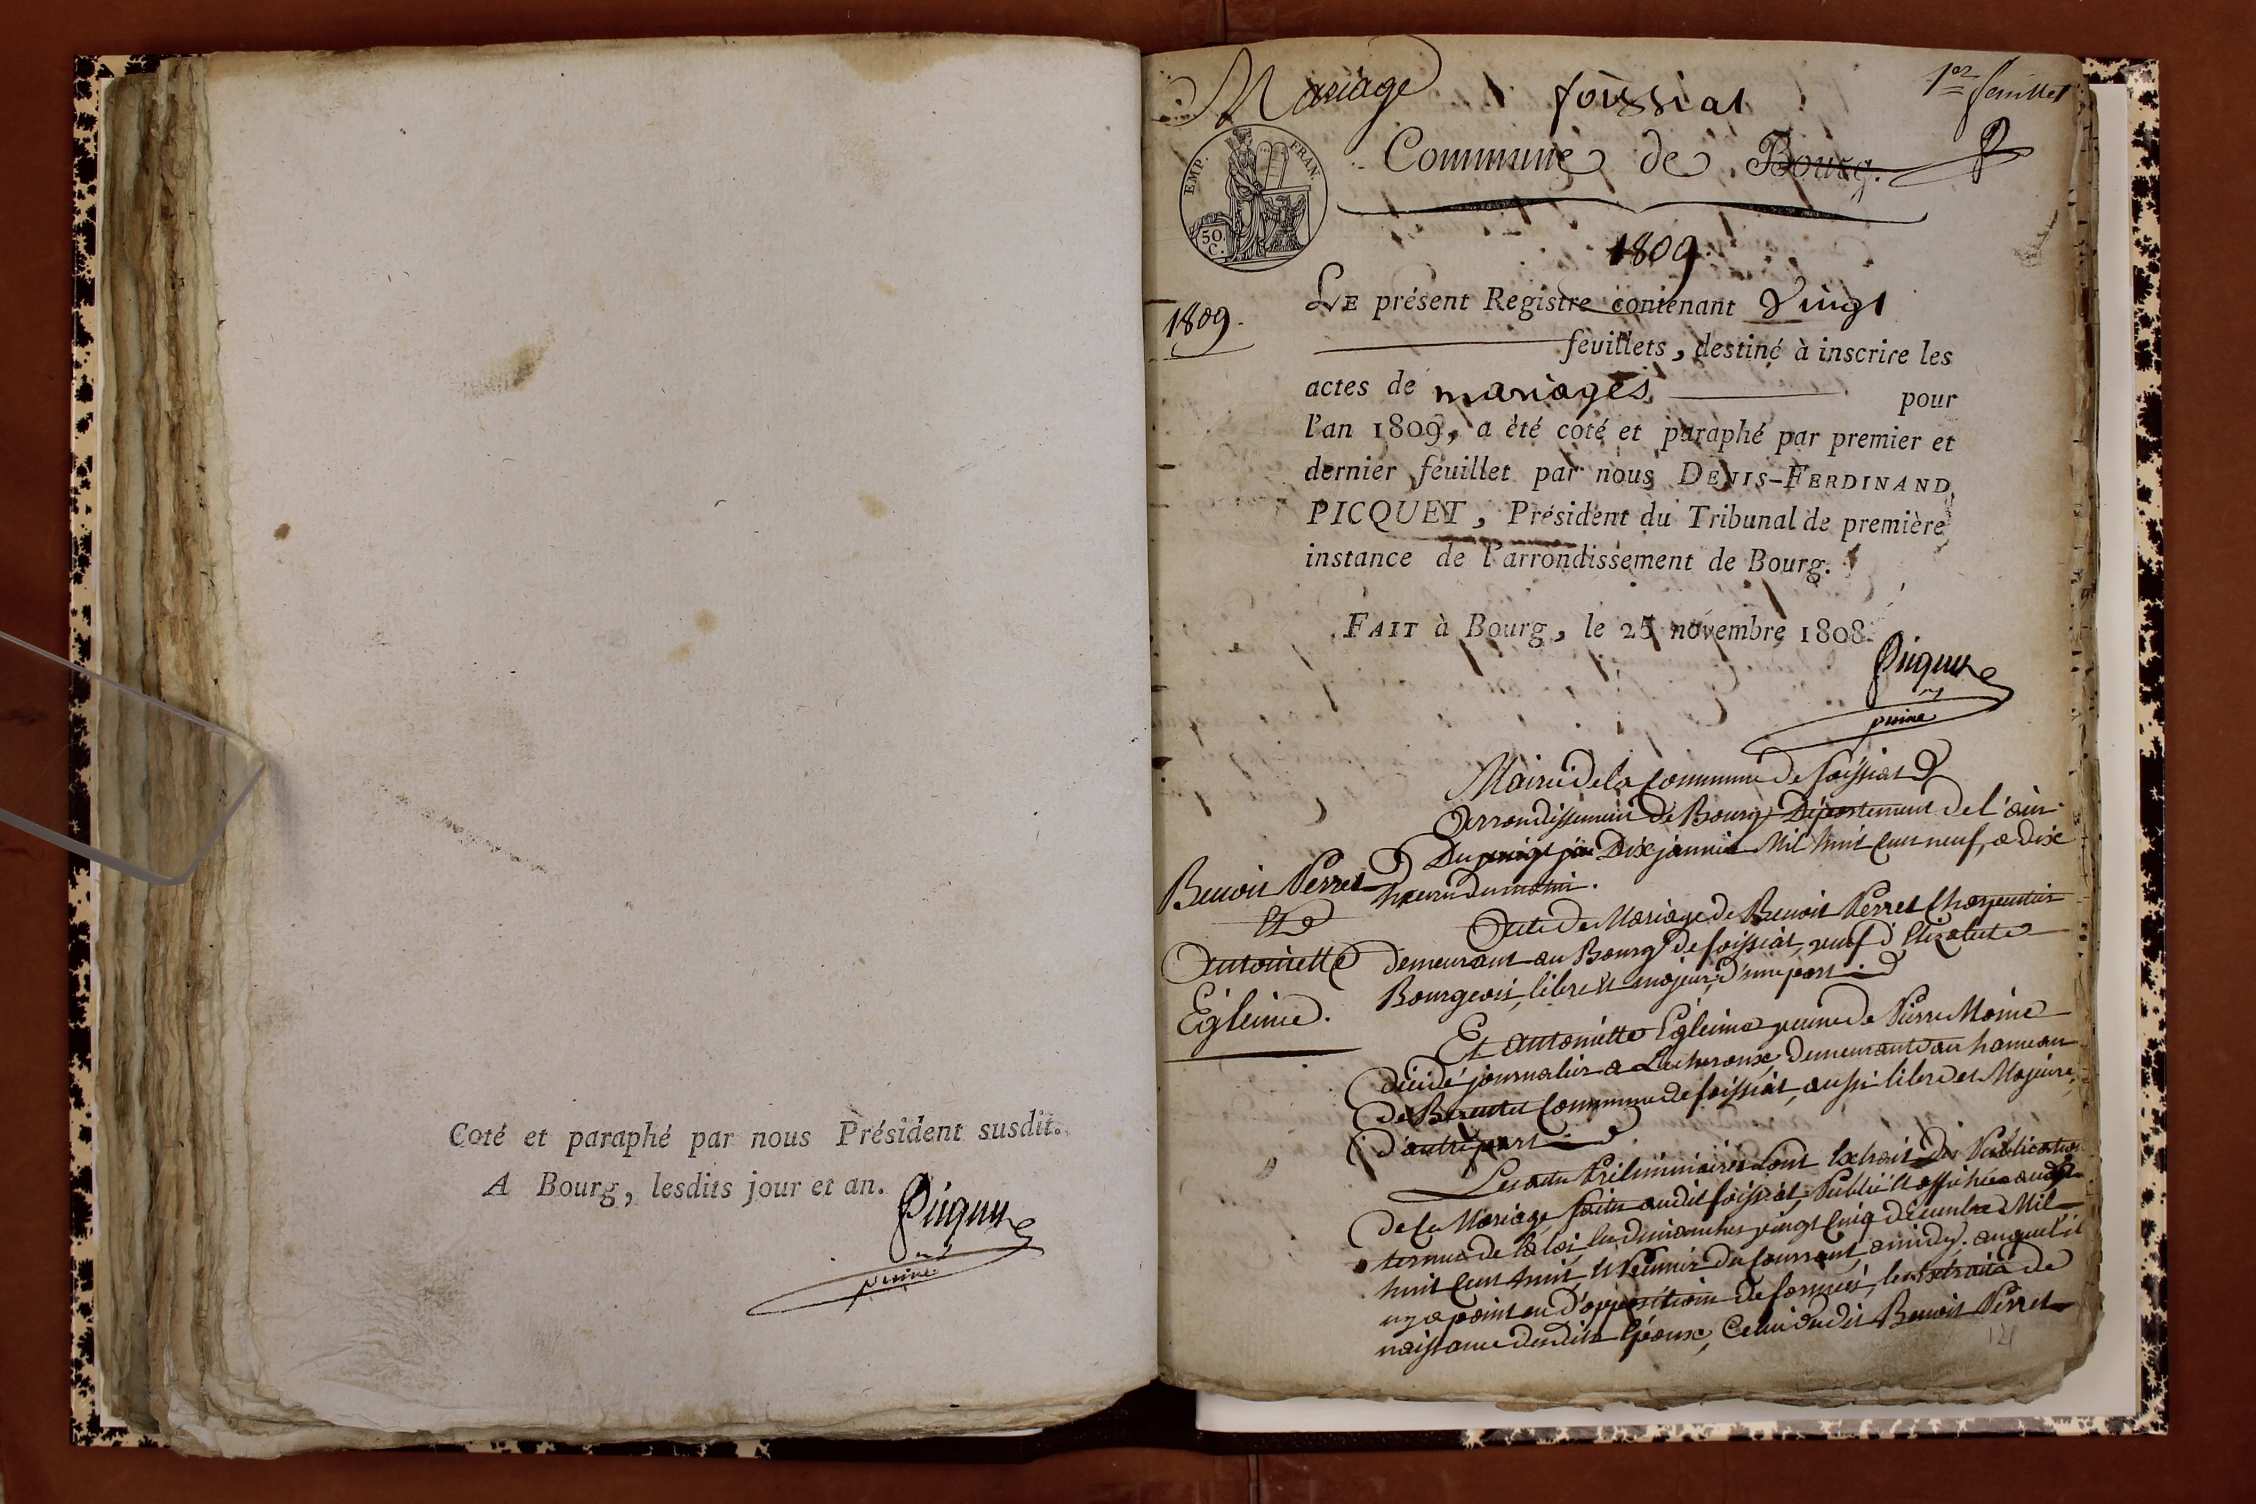 Coté et paraphé par nous Président susdit.
A Bourg, lesdits jour et an.
Picquet
Mariage
foissiat
1er feuillet
Commune de Bourg.
EMP. FRAN.
50.
C.
1809
1809.
LE présent Registre contenant Vingt
feuillets, destiné à inscrire les
actes de mariages pour
l'an 1809, a été coté et paraphé par premier et
dernier feuillet par nous DENIS-FERDINAND
PICQUET, Président du Tribunal de première
instance de l'arrondissement de Bourg.
FAIT à Bourg, le 25 novembre 1808.
Picquet
Mairie de la Commune de foissiat
Arrondissement de Bourg Département de l'ain.
Du Dix janvier Mil huit Cent neuf, a dix
heures du matin.
Benoit Perret
Et
Antoinette
Egleime.
Acte de Mariage de Benoit Perret Charpentier
demeurant au Bourg de foissiat, veuf d'Elizabete
Bourgeois, libre et majeur, d'une part.
Et Antoinette Egleime veuve de Pierre Moine
décédé journalier a demeurante au hameau
de Commune de foissiat, aussi libre et Majeure,
d'autre part
Les actes Préliminaires sont Extrait des Publications
de ce Mariage faites audit foissiat, Publié et affichée aux
termes de la loi, les dimanches vingt Cinq décembre Mil
huit Cent huit, et Premier du Courrant, a midy. auquel il
n'y a point eu d'opposition de formée, les Extraits de
naissance desdits Epoux, Celui dudit Benoit Perret
121